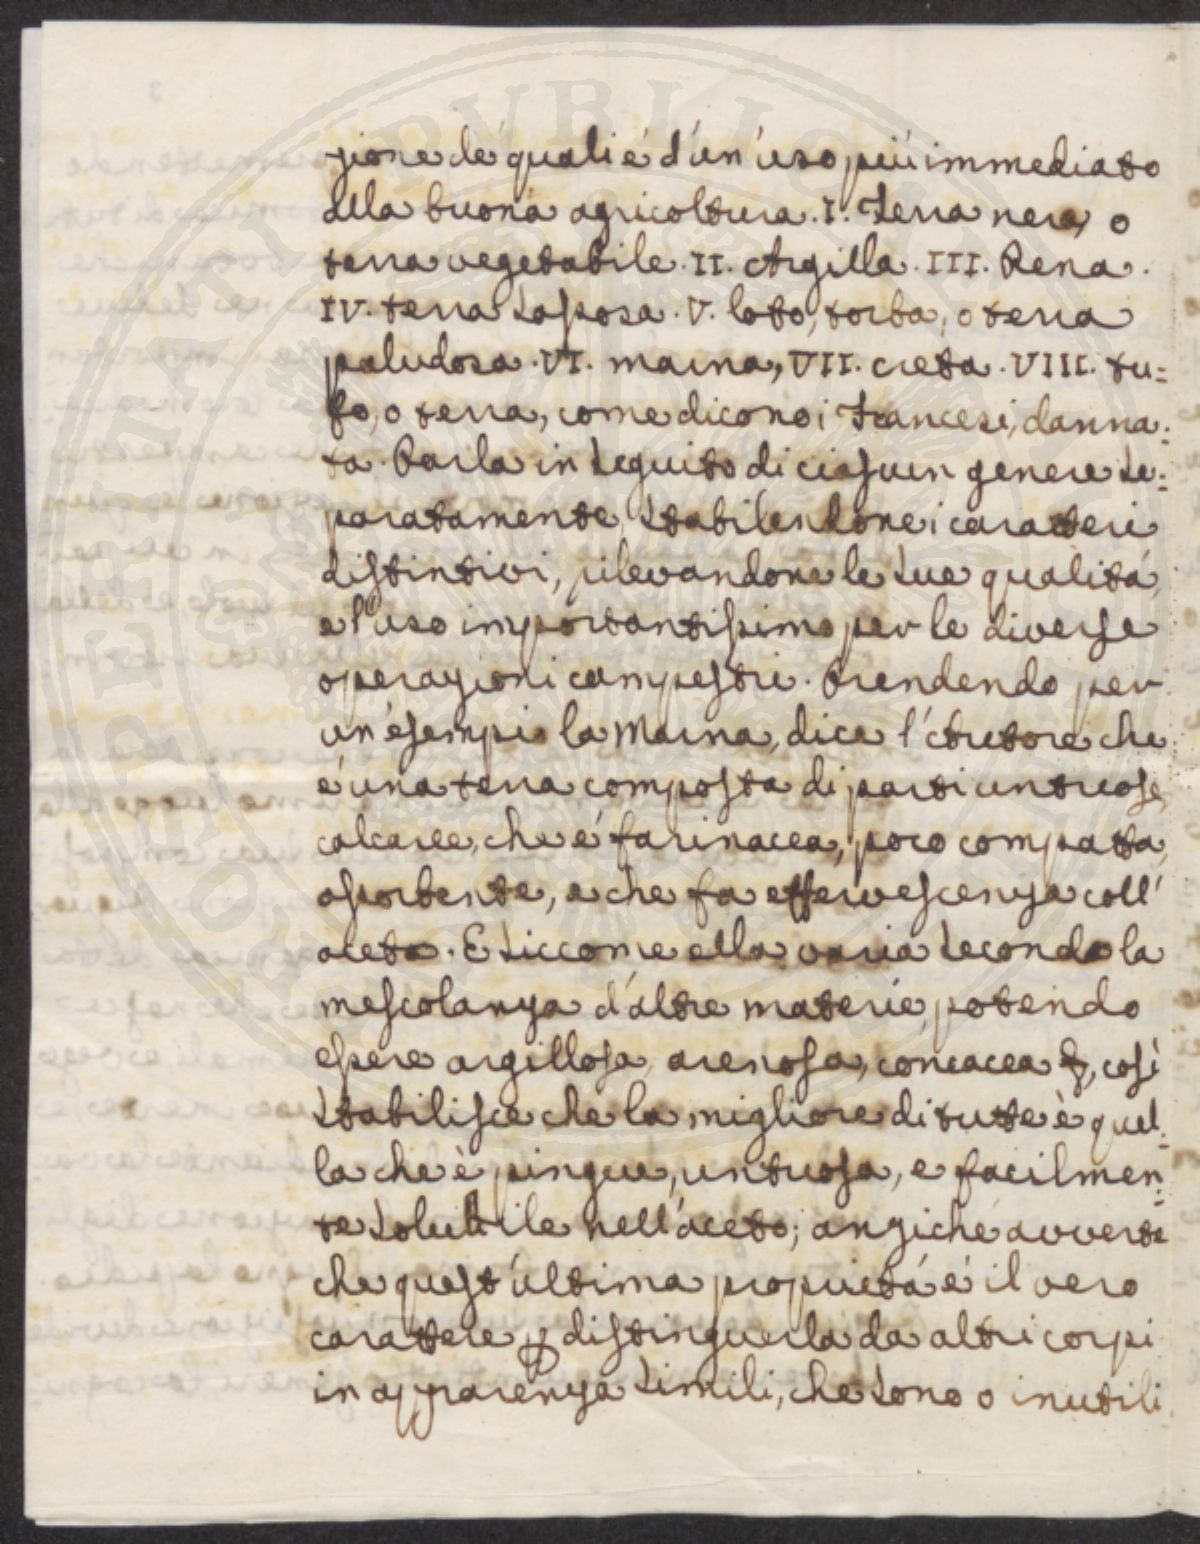 zione de' quali è d'un'uso più immediato
alla buona agricoltura. I. Terra nera, o
terra vegetabile. II. Argilla. III. Rena.
IV. terra sassosa. V. loto, torba, o terra
paludosa. VI. marna, VII. creta. VIII. tu=
fo, o terra, come dicono i Francesi, danna=
ta. Parla in seguito di ciascun genere se=
paratamente, stabilendone i caratteri
distintivi, rilevandone le sue qualità,
e l'uso importantissimo per le diverse
operazioni campestri. Prendendo per
un'esempio la Marna, dice l'Autore che
è una terra composta di parti untuose,
calcaree, che è farinacea, poco compatta,
assorbente, e che fa effervescenza coll'
aceto. E siccome ella varia secondo la
mescolanza d'altre materie, potendo
essere argillosa, arenosa, concacea &, così
stabilisce che la migliore di tutte è quel=
la che è pingue, untuosa, e facilmen=
te solubile nell'aceto; anziché avverte
che quest'ultima proprietà è il vero
carattere p distinguerla da altri corpi
in apparenza simili, che sono o inutili
PERUSIAE AUGUSTAE PUBLICAE